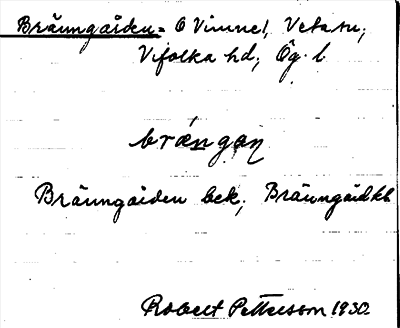 Bränngården = O Vinne!, Veta sn,
Vifolka hd, Ög. l
bræ´ngaɳ
Bränngården bek, Bränngårdkb
Robert Pettersson 1930.